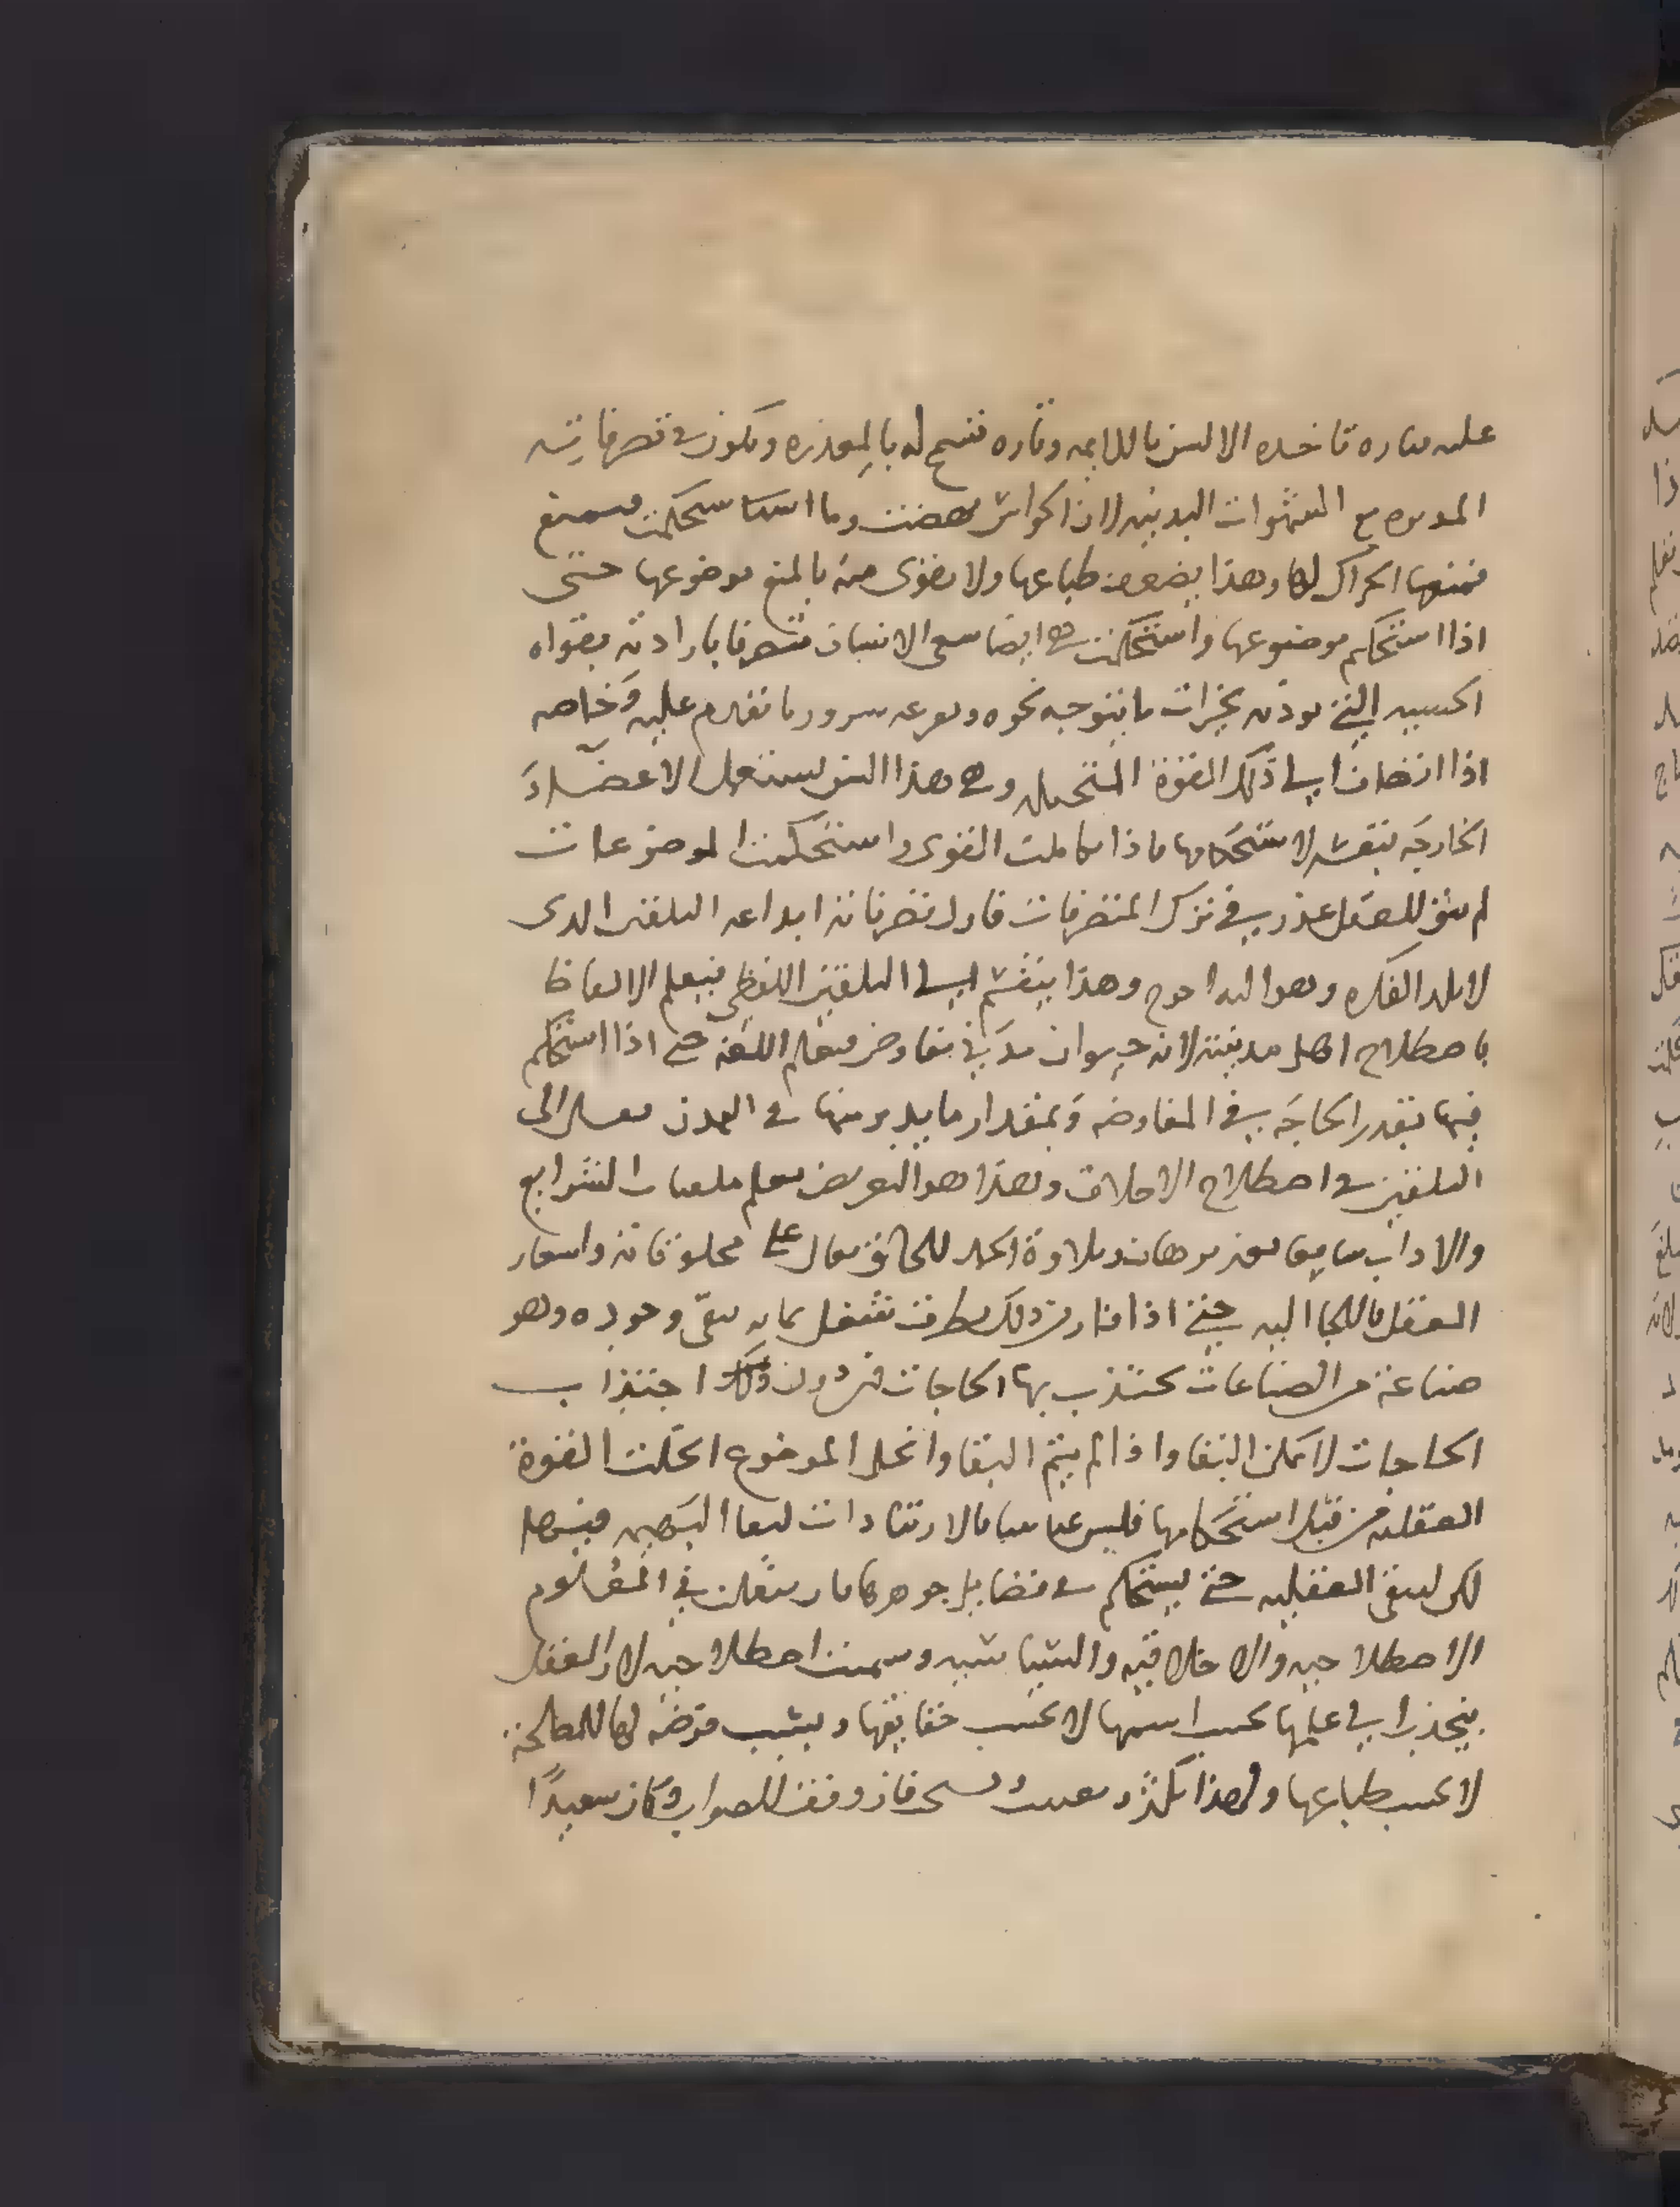 عليه فتاره تاخده الالسن باللايمه وتاره تسمح له بالمعذره وتكون في تصرفاته
مع الشهوات البدنيه لان الحواس نهضت وما
فمنعها الحراك لها وهذا يضعف طباعها ولا يقوى منه بالمنع موضوعها حتى
اذا استحكم موضوعها واستحكمت هي ايضا سعى الانسان متصرفا بارادته بقواه
الحسيه التي توديه بخبرات ما يتوجه نحوه سرور ما تقدم عليه وخاصه
اذا انضاف الى ذلك القوة المتخيله وفي هذا السن يستعمل الاعضاء
الخارجه بنفسه لاستحكامها فاذا كاملت القوى واستحكمت الموضوعات
لم يبق للعقل عذر في ترك المتصرفات فاول تصرفاته ابداعه التلقين الدى
لا يلد الفكره وهو اليه احوج وهذا ينقسم الى التلقين اللفظي فيتعلم الالفاظ
باصطلاح اهل مدينته لانه حيوان مدني مفاوض فيتعلم اللغه حتى اذا استحكم
فيها بقدر الحاجه في المفاوضه وبمقدار ما يدبر منها في المدن الى
التلقين في اصطلاح الاخلاق وهذا هو التعريض بتعلم ملقنات الشرايع
والاداب بغير برهان وتلاوة الحمد للخالق تعالى على مخلوقاته واسعار
العقل باللجا اليه حتى اذا من ذلك بطرف تشغل بما به يبقى وجوده وهو
صناعة من الصناعات تجتذب بها الحاجات فمن دون ذلك اجتذاب
الحاجات لا يمكن البقا واذا لم يتم البقا وانحل الموضوع انحلت القوة
العقليه من قبل استحكامها فليس بالارتشادات لبقا البهيميه فيها
لكن لتبقى العقليه حتى يستحكم في فضايل جوهرها في العلوم
الاصطلاحيه والاخلاقيه والسياسيه وسميت اصطلاحيه لان العقل
ينجذب الى علمها بحسب اسمها لا بحسب حقايقها وبسبب فرضه لها للمصالحة
لا بحسب طباعها ولهذا تكثر فان وفقت للصواب وكان سعيدًا